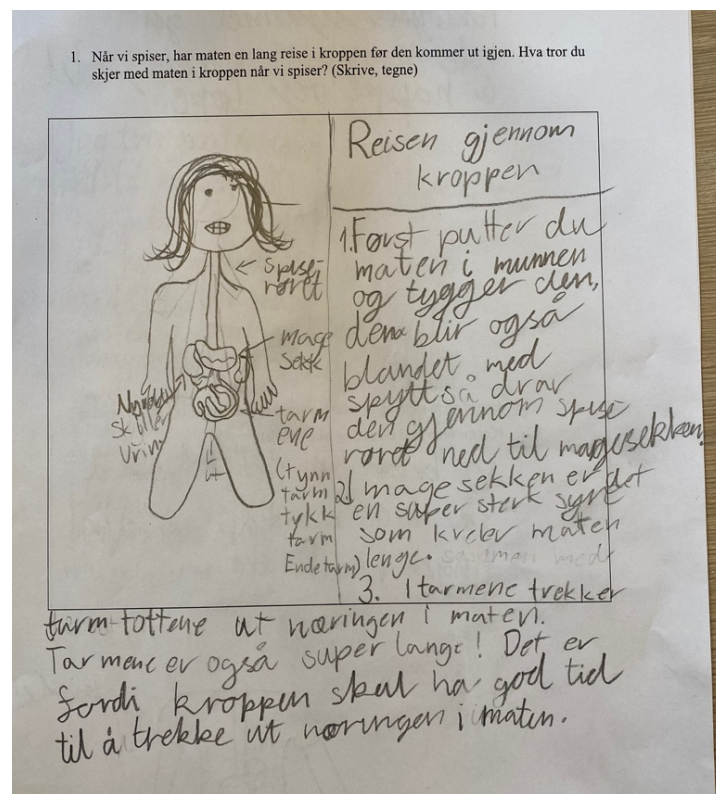 1. Når vi spiser, har maten en lang reise i kroppen før den kommer ut igjen. Hva tror du
skjer med maten i kroppen når vi spiser? (Skrive, tegne)
Spise-
røret
mage
sekk
tarm
ene
(tynn
tarm
tykk
tarm
Endetarm)
Urin
Reisen gjennom
kroppen
1. Først putter du
maten i munnen
og tygger den,
den blir også
blandet med
spytt så drar
den gjennom spise
røret ned til magesekken.
2. I mage sekken er det
en super sterk syre
som maten
lenge.
3. I tarmene trekker
tarm-tottene ut næringen i maten.
Tarmene er også super lange! Det er
fordi kroppen skal ha god tid
til å trekke ut næringen i maten.